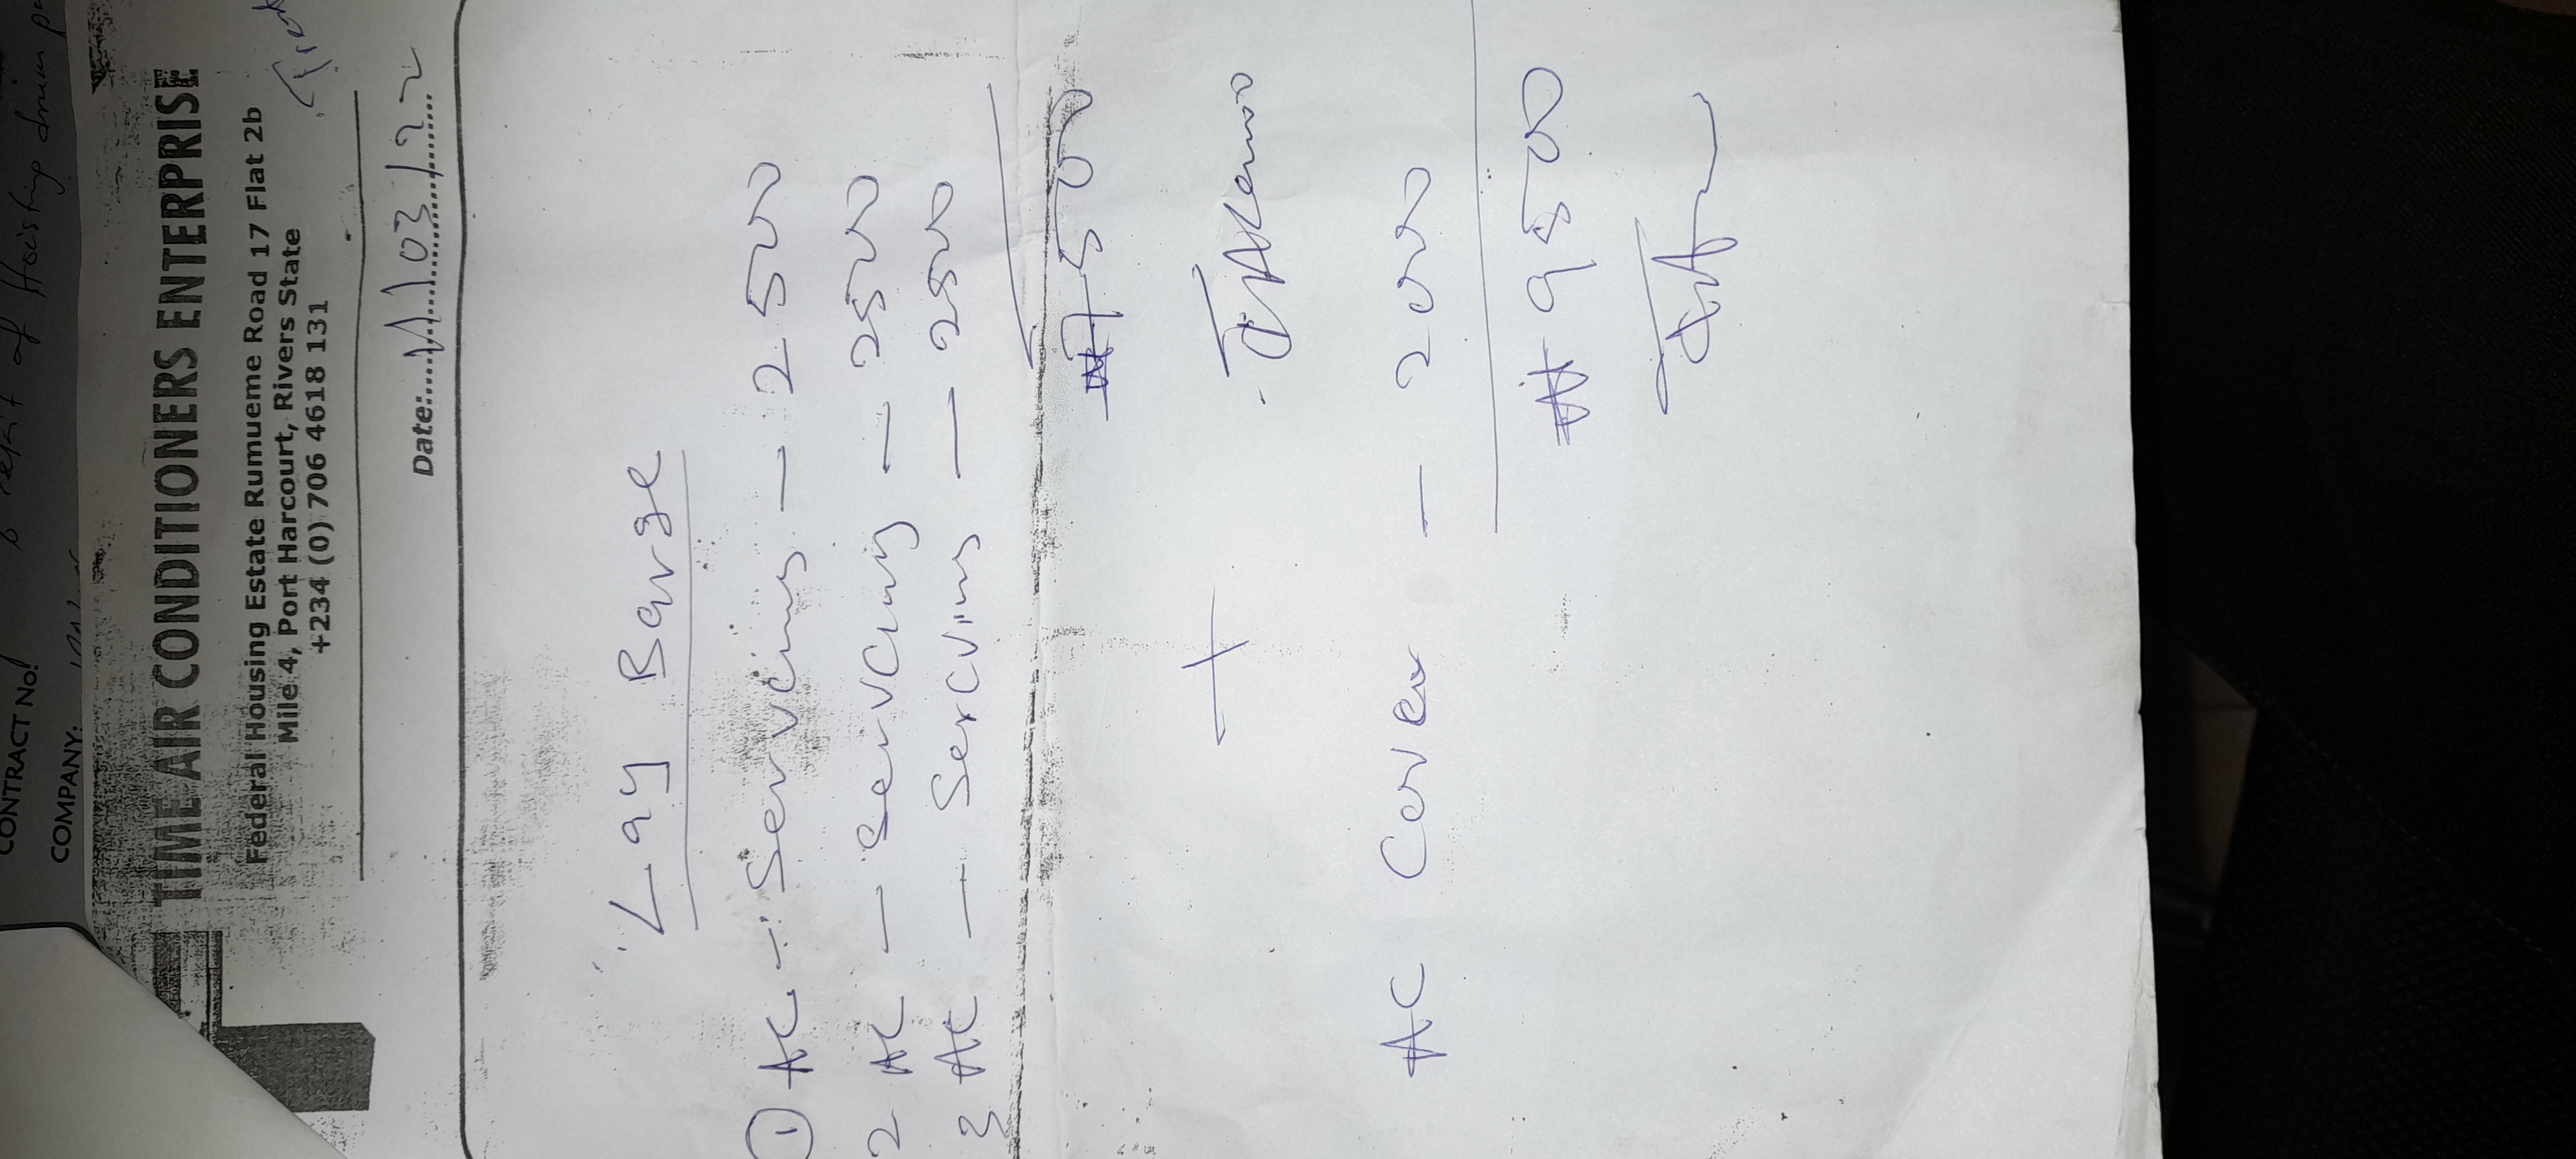 CONTRACT No!
of Hoisting drum
COMPANY:
TIME AIR CONDITIONERS ENTERPRISE
Federal Housing Estate Rumueme Road 17 Flat 2b
Mile 4, Port Harcourt, Rivers State
+234 (0) 706 4618 131
Date:....11/03/22
Lay Barge
1 AC - Servcing - 2500
2 AC - Servcing - 2500
3 AC - Sercving - 2500
₦7500
+
AC Cover - 2000
₦9500